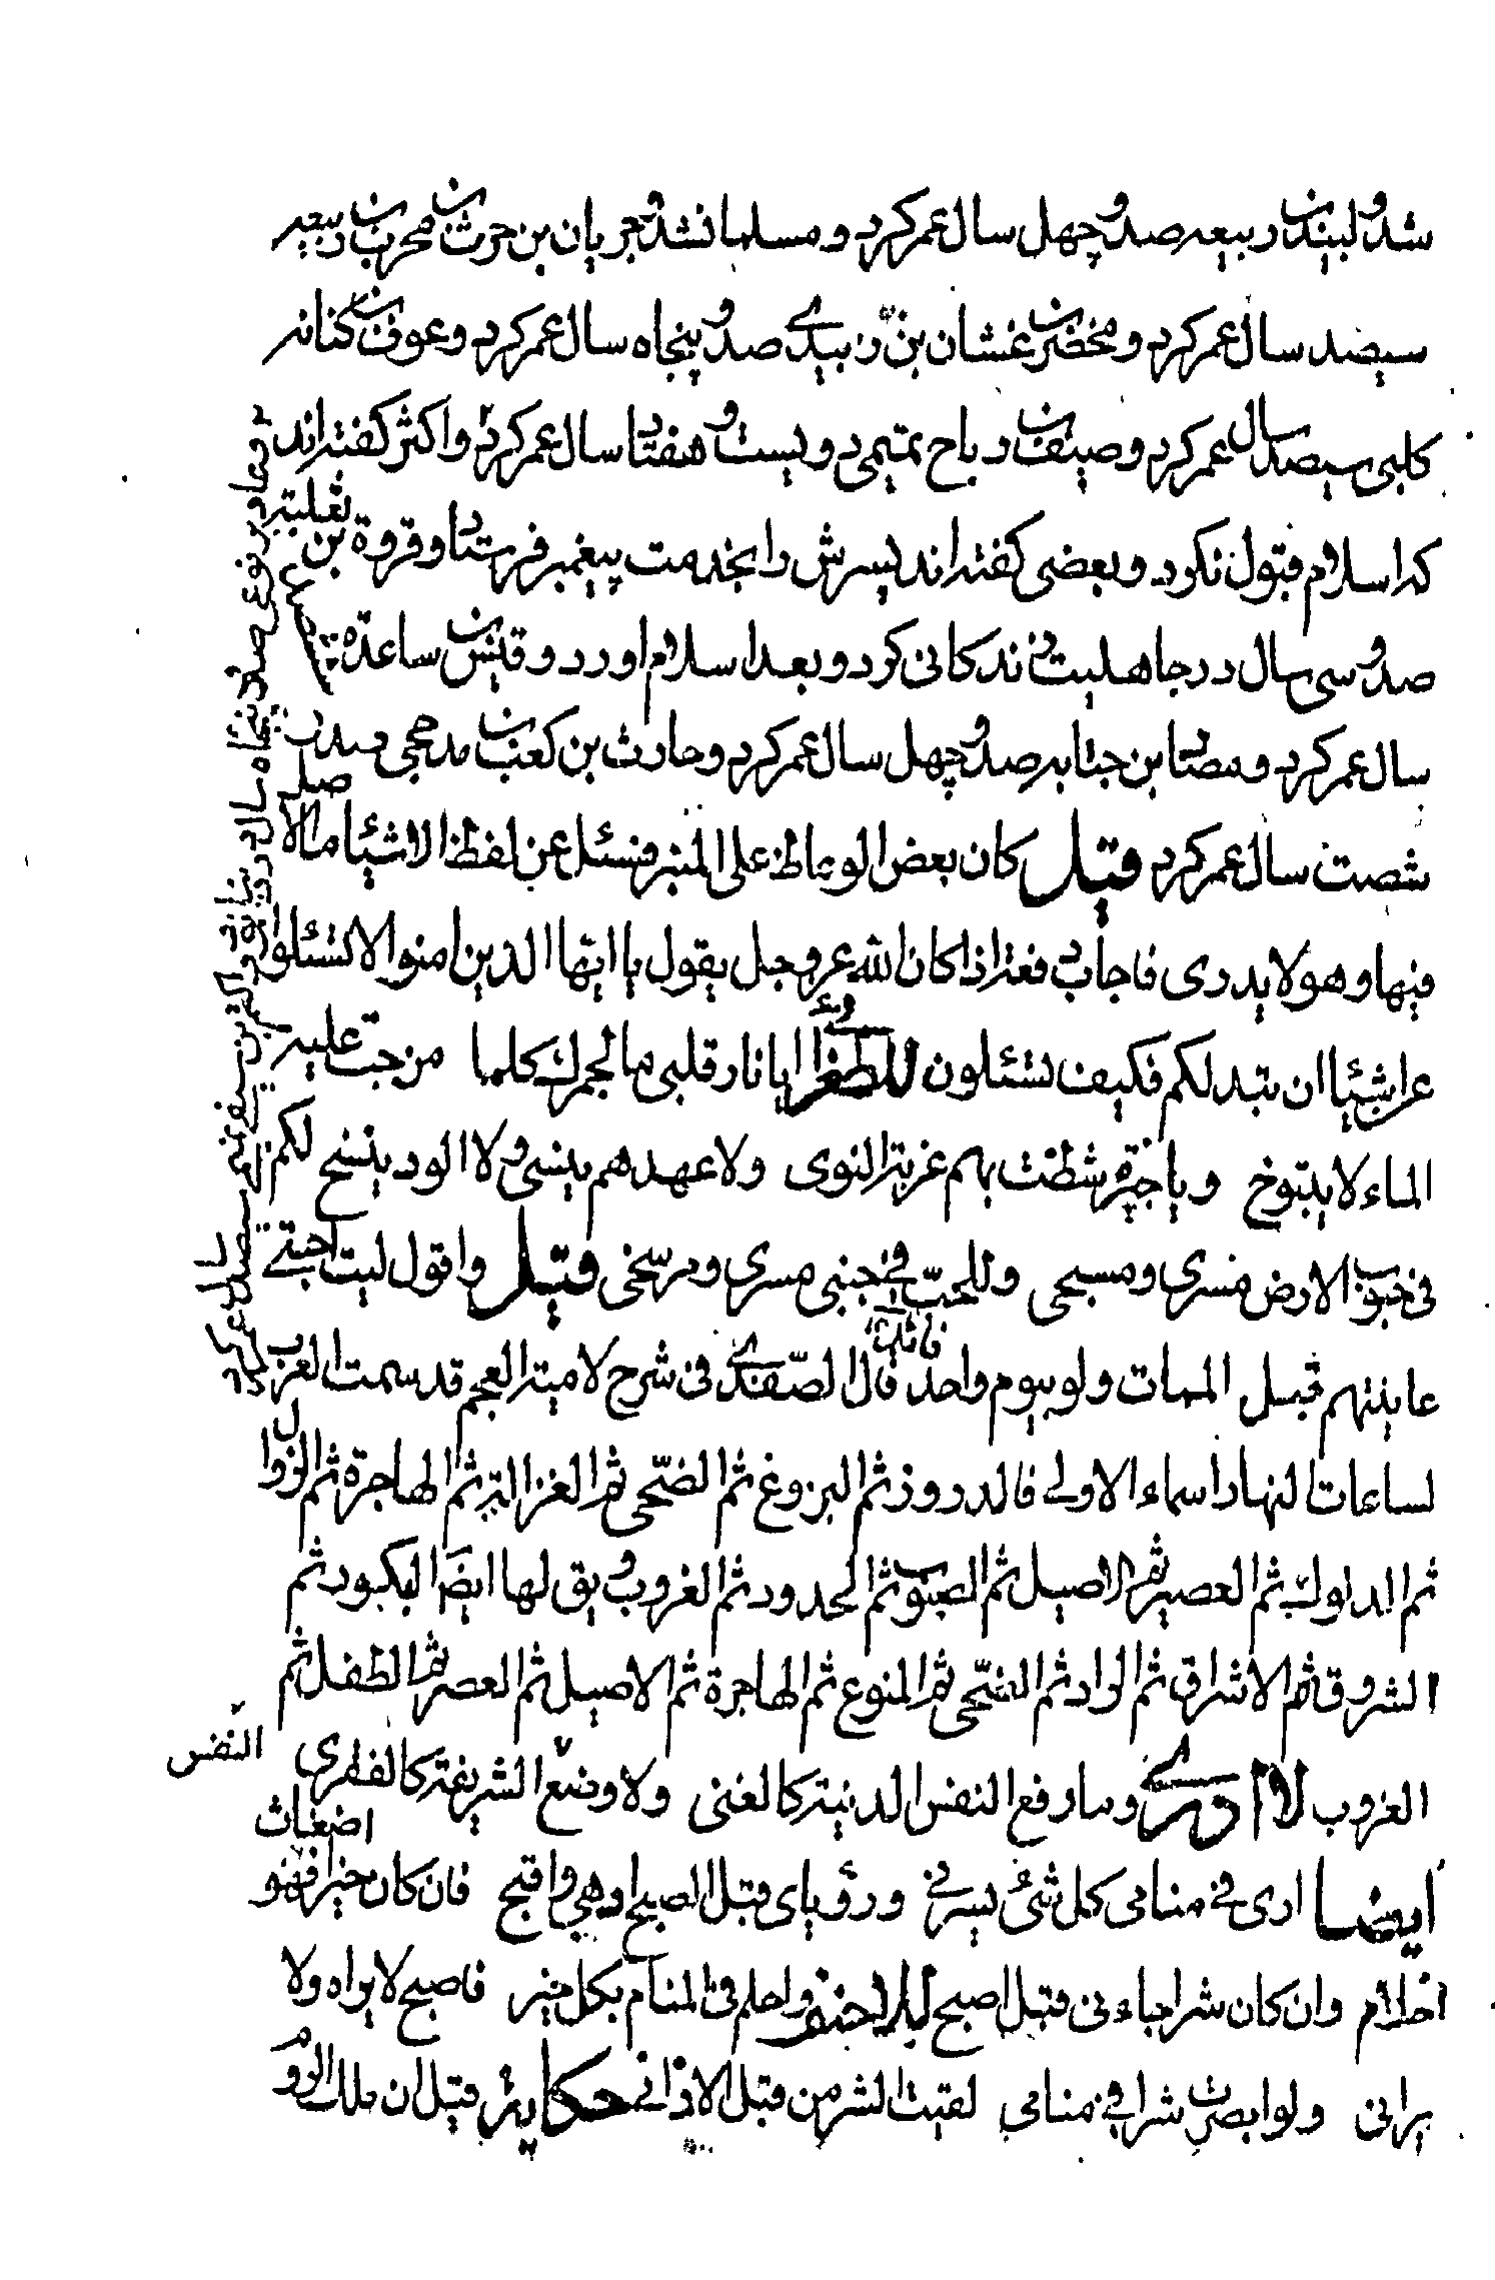 شد و لبید بن ربیعه صد و چهل سال عمر کرد و مسلمان شد و جریان بن حرث بن محرب بن ربیعه
سیصد سال عمر کرد و محضر بن غشان بن زبیدی صد و پنجاه سال عمر کرد و عوف بن کنانه
کلبی سیصد سال عمر کرد و صیفی بن رباح تمیمی دویست و هفتاد سال عمر کرد و اکثر کفته اند
که اسلام قبول نکرد و بعضی کفته اند پسرش را بخدمت پیغمبر فرستاد و قروة بن ثعلبه
صد و سی سال در جاهلیت زندکانی کرد و بعد اسلام اورد و قیس بن ساعده
سال عمر کرد و مصاد بن جنابه صد و چهل سال عمر کرد و حارث بن کعب بن مدحجی صد
شصت سال عمر کرد قیل کان بعض الوعاظ علی المنبر فسئل عن لفظ الاشیاء ما الاصل
فیها و هو لا یدری فاجاب دفعة اذا کان الله عز و جل یقول یا ایها الذین امنوا لا تسئلوا
عن اشیاء ان تبد لکم فکیف تسئلون للطغرائی ایا نار قلبی ما لجمرک کلما من جت علیه
الماء لا یتبوخ و یا جیرة شطت بهم غربة النوی ولا عهدهم ینسی ولا الود ینسخ لکم
فی جنوب الارض مسری و مسبحی وللحب فی جنبی مسری و مرسخی قیل واقول لیت احبتی
عاینتهم قبل الممات ولو بیوم واحد فائدة قال الصفدی فی شرح لامیة العجم قد سمت العرب
لساعات النهار اسماء الاولی فالدرور ثم البزوغ ثم الضحی ثم الغزالة ثم الهاجرة ثم الزوال
ثم الدلوک ثم العصر ثم الاصیل ثم الصبوب ثم الحدود ثم الغروب و یق لها ایضا البکور ثم
الشروق ثم الاشراق ثم الراد ثم الضحی ثم المنوع ثم الهاجرة ثم الاصیل ثم العصر ثم الطفل ثم
الغروب لا ادری و ما رفع النفس الدنیة کالغنی ولا وضع النفس الشریفة کالفقر
ایضا اری فی منامی کل شئ یسرنی و رؤیای قبل الصبح ادهی و اقبح فان کان خیرا فهو اضغاث
احلام وان کان شرا جاءنی قبل اصبح للاحنف و احلم فی المنام بکل خیر فاصبح لا یراه ولا
یرانی ولو ابصرت شرا فی منامی لقیت الشر من قبل الاذان حکایة قیل ان ملک الروم
پنجاه سال در
سیصد سال عمر کرد